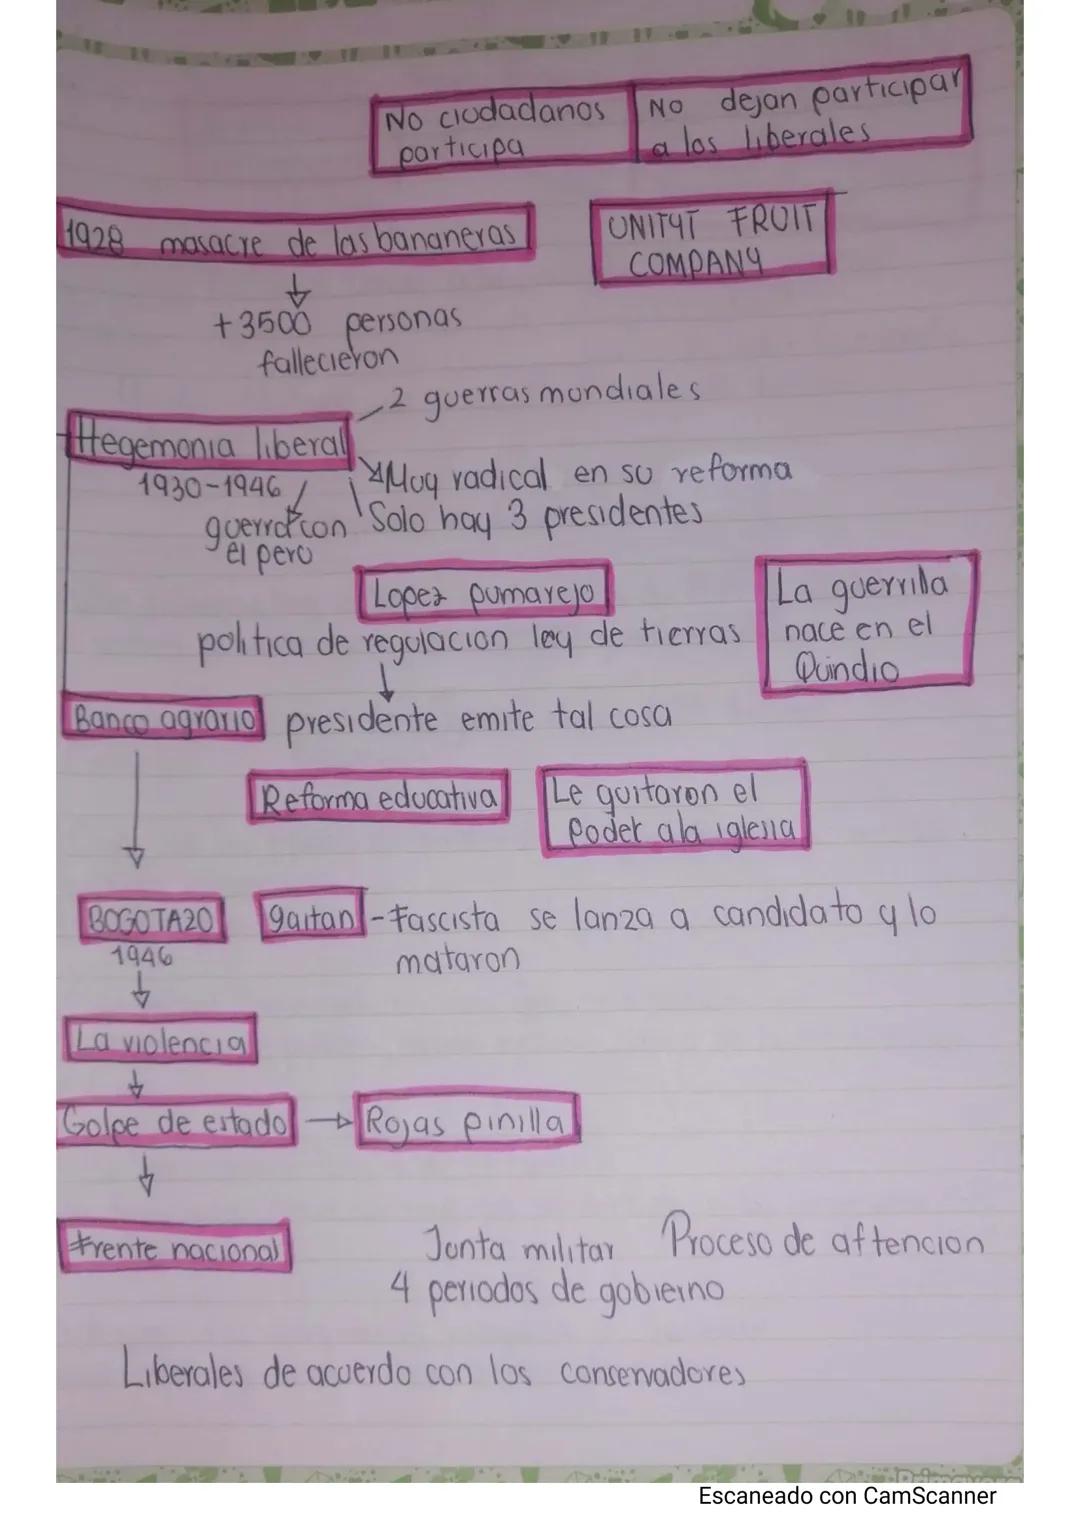 No ciudadanos
participa
No dejan participar
a los liberales
1928 masacre de las bananeras
UNITYT FRUIT
COMPANY
+3500 personas
fallecieron
2 guerras mundiales
Hegemonia liberal
1930-1946
Muy radical en su reforma
Solo hay 3 presidentes
guerra con
el peru
Lopez pumarejo
politica de regulacion ley de tierras
La guerrilla
nace en el
Quindio
Banco agrario
presidente emite tal cosa
Reforma educativa
Le quitaron el
Poder a la iglesia
BOGOTAZO
1946
gaitan - Fascista se lanza a candidato y lo
mataron
La violencia
Golpe de estado
Rojas pinilla
Frente nacional
Junta militar
Proceso de aftencion
4 periodos de gobierno
Liberales de acuerdo con los conservadores
Escaneado con CamScanner